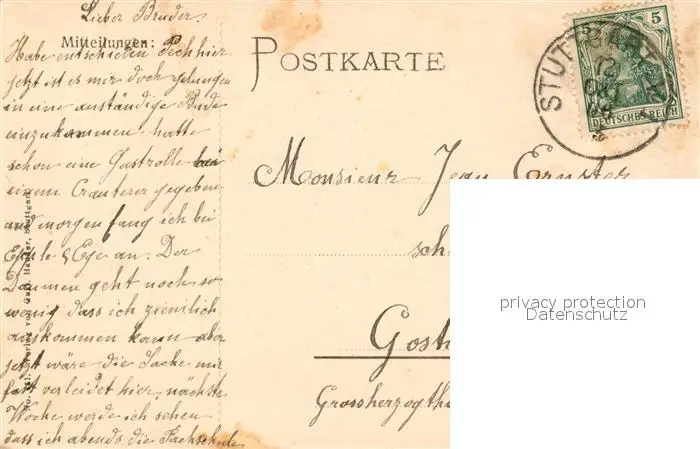 Lieber Bruder
Mitteilungen:
Habe entschieden Pech hier
jetzt ist es mir doch gelungen
in eine anständige Bude
einzukommen hatte
schon eine Gastrolle bei
einem Crauterer gegeben
und morgen fang ich bei
& Ege an. Der
Daumen geht noch so
wenig dass ich ziemlich
auskommen kann aber
jetzt wäre die Sache mir
fast verleidet hier, nächste
Woche werde ich sehen
dass ich abends die Fachschule
POSTKARTE
5
DEUTSCHES REICH
STUTTGART
Monsieur Jean Ernster
sch
Gost
Grossherzogth
privacy protection
Datenschutz